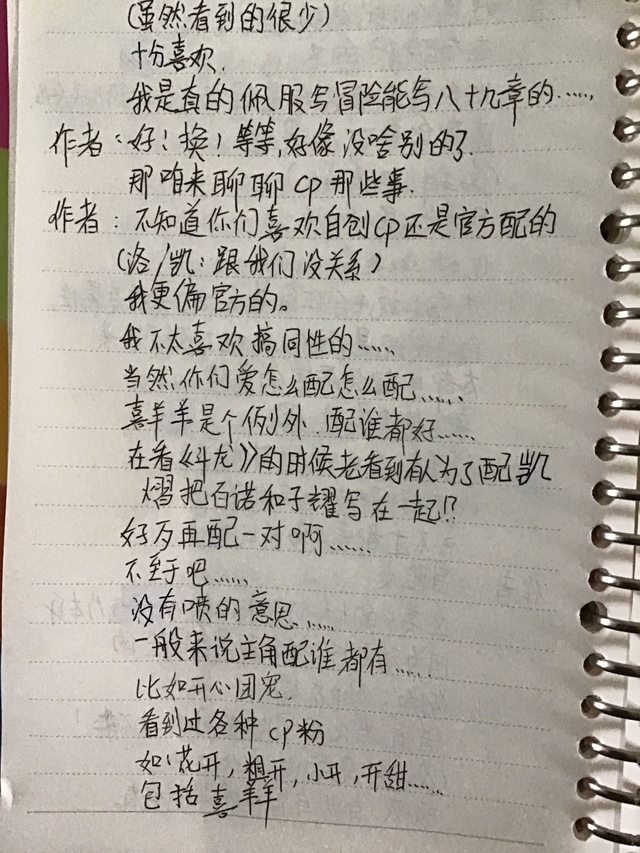 (虽然看到的很少)
十分喜欢.
我是真的佩服写冒险能写八十九章的……
作者:好!换!等等,好像没啥别的了.
那咱来聊聊cp那些事.
作者:不知道你们喜欢自创cp还是官方配的
(洛/凯:跟我们没关系)
我更偏官方的。
我不太喜欢搞同性的……
当然你们爱怎么配怎么配……
喜羊羊是个例外 配谁都好……
在看《斗龙》的时候老看到有人为了配凯
熠把百诺和子耀写在一起!?
好歹再配一对啊……
不至于吧……
没有喷的意思……
一般来说主角配谁都有……
比如开心团宠.
看到过各种cp粉
如:花开,粗开,小开,开甜……
包括喜羊羊